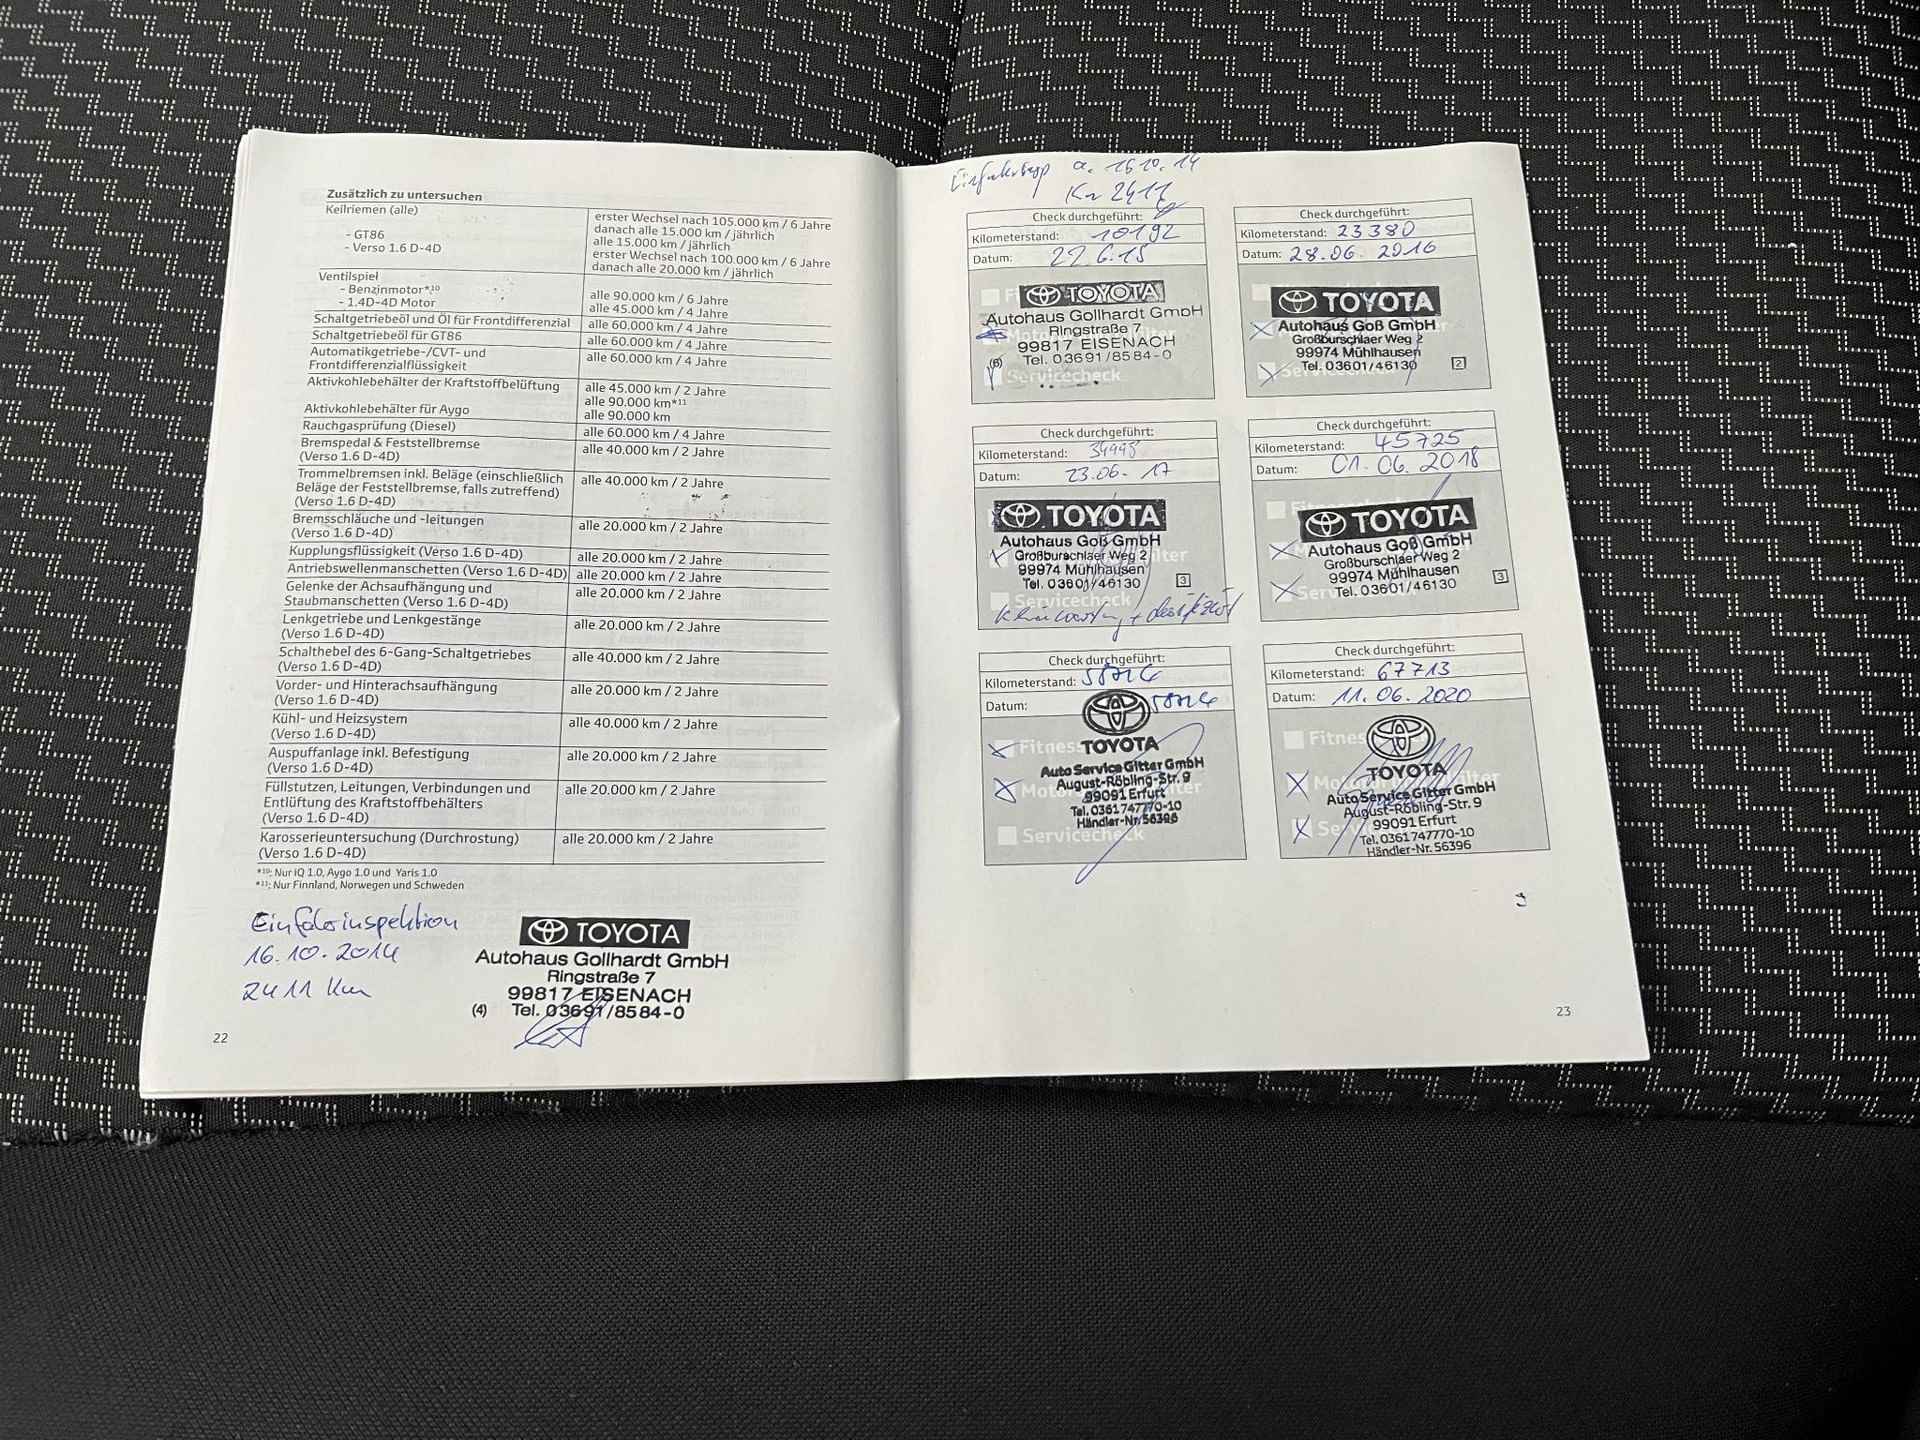 Zusätzlich zu untersuchen
Keilriemen (alle)
erster Wechsel nach 105.000 km / 6 Jahre
danach alle 15.000 km / jährlich
- GT86
alle 15.000 km / jährlich
- Verso 1.6 D-4D
erster Wechsel nach 100.000 km / 6 Jahre
danach alle 20.000 km / jährlich
Ventilspiel
- Benzinmotor*¹⁰
alle 90.000 km / 6 Jahre
- 1.4D-4D Motor
alle 45.000 km / 4 Jahre
Schaltgetriebeöl und Öl für Frontdifferenzial
alle 60.000 km / 4 Jahre
Schaltgetriebeöl für GT86
alle 60.000 km / 4 Jahre
Automatikgetriebe-/CVT- und
Frontdifferenzialflüssigkeit
alle 60.000 km / 4 Jahre
Aktivkohlebehälter der Kraftstoffbelüftung
alle 45.000 km / 2 Jahre
alle 90.000 km*¹¹
Aktivkohlebehälter für Aygo
alle 90.000 km
Rauchgasprüfung (Diesel)
alle 60.000 km / 4 Jahre
Bremspedal & Feststellbremse
(Verso 1.6 D-4D)
alle 40.000 km / 2 Jahre
Trommelbremsen inkl. Beläge (einschließlich
Beläge der Feststellbremse, falls zutreffend)
(Verso 1.6 D-4D)
alle 40.000 km / 2 Jahre
Bremsschläuche und -leitungen
(Verso 1.6 D-4D)
alle 20.000 km / 2 Jahre
Kupplungsflüssigkeit (Verso 1.6 D-4D)
alle 20.000 km / 2 Jahre
Antriebswellenmanschetten (Verso 1.6 D-4D)
alle 20.000 km / 2 Jahre
Gelenke der Achsaufhängung und
Staubmanschetten (Verso 1.6 D-4D)
alle 20.000 km / 2 Jahre
Lenkgetriebe und Lenkgestänge
(Verso 1.6 D-4D)
alle 20.000 km / 2 Jahre
Schalthebel des 6-Gang-Schaltgetriebes
(Verso 1.6 D-4D)
alle 40.000 km / 2 Jahre
Vorder- und Hinterachsaufhängung
(Verso 1.6 D-4D)
alle 20.000 km / 2 Jahre
Kühl- und Heizsystem
(Verso 1.6 D-4D)
alle 40.000 km / 2 Jahre
Auspuffanlage inkl. Befestigung
(Verso 1.6 D-4D)
alle 20.000 km / 2 Jahre
Füllstutzen, Leitungen, Verbindungen und
Entlüftung des Kraftstoffbehälters
(Verso 1.6 D-4D)
alle 20.000 km / 2 Jahre
Karosserieuntersuchung (Durchrostung)
(Verso 1.6 D-4D)
alle 20.000 km / 2 Jahre
*¹⁰: Nur IQ 1.0, Aygo 1.0 und Yaris 1.0
*¹¹: Nur Finnland, Norwegen und Schweden
16.10.2014
2411 Km
TOYOTA
Autohaus Gollhardt GmbH
Ringstraße 7
99817 EISENACH
(4) Tel. 03691/8584-0
22
a. 16.10.14
Km 2411
Check durchgeführt:
Kilometerstand: 10192
Datum: 22.6.15
TOYOTA
Autohaus Gollhardt GmbH
Ringstraße 7
99817 EISENACH
(6) Tel. 03691/8584-0
Servicecheck
Check durchgeführt:
Kilometerstand: 23380
Datum: 28.06.2016
TOYOTA
Autohaus Goß GmbH
Großburschlaer Weg 2
99974 Mühlhausen
Tel. 03601/46130
2
Check durchgeführt:
Kilometerstand: 34998
Datum: 23.06.17
TOYOTA
Autohaus Goß GmbH
Großburschlaer Weg 2
99974 Mühlhausen
Tel. 03601/46130
3
Servicecheck
Check durchgeführt:
Kilometerstand: 45725
Datum: 01.06.2018
TOYOTA
Autohaus Goß GmbH
Großburschlaer Weg 2
99974 Mühlhausen
Tel. 03601/46130
3
Check durchgeführt:
Kilometerstand:
Datum:
TOYOTA
Auto Service Gitter GmbH
August-Röbling-Str. 9
99091 Erfurt
Tel. 0361 747770-10
Händler-Nr. 56396
Servicecheck
Check durchgeführt:
Kilometerstand: 67713
Datum: 11.06.2020
TOYOTA
Auto Service Gitter GmbH
August-Röbling-Str. 9
99091 Erfurt
Tel. 0361 747770-10
Händler-Nr. 56396
23